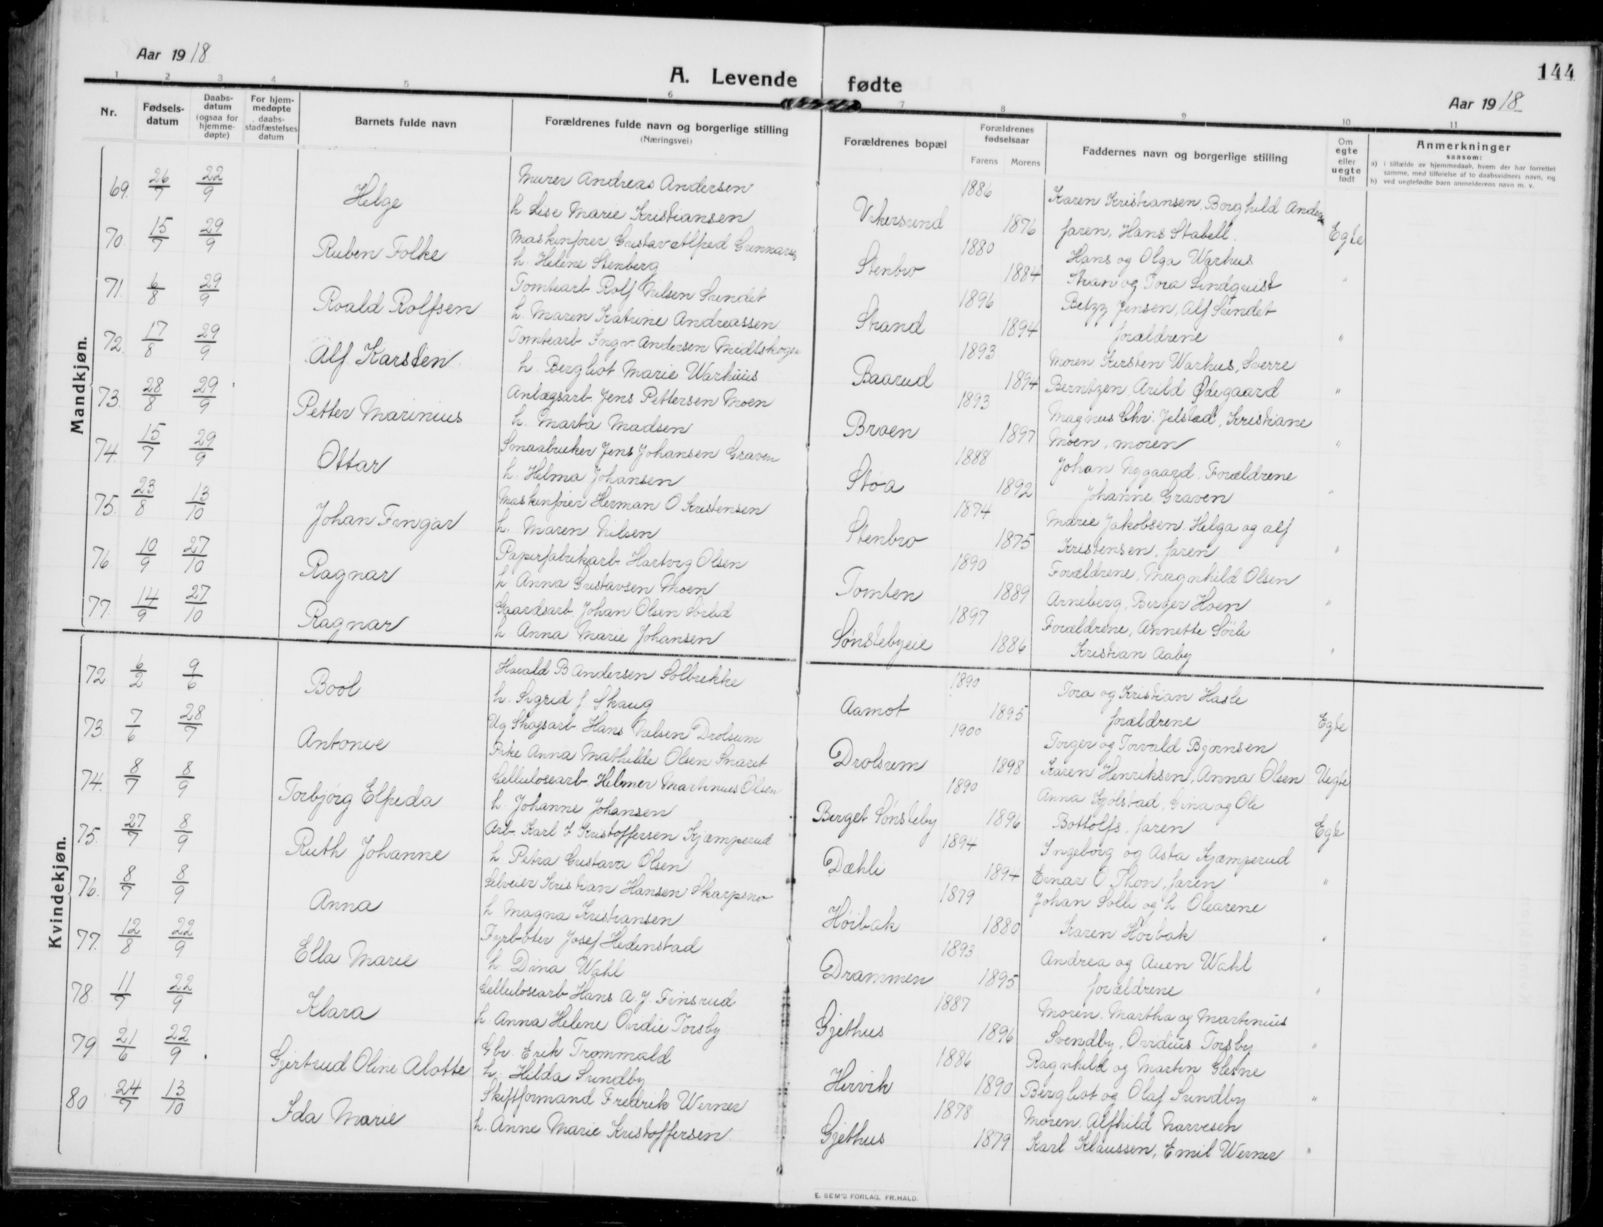 Aar 1918
A. Levende fødte
144
Aar 1918
1 2 3 4 5 6 7 8 9 10 11
Nr.
Fødsels-datum
Daabs-datum (ogsaa for hjemme-døpte)
For hjem-medøpte daabs-stadfæstelses datum
Barnets fulde navn
Forældrenes fulde navn og borgerlige stilling
(Næringsvei)
Forældrenes bopæl
Forældrenes fødselsaar
Farens Morens
Faddernes navn og borgerlige stilling
Om egte eller uegte født
Anmerkninger
saasom:
a) i tilfælde av hjemmedaab, hvem der har forrettet samme, med tilføielse af to daabsvidners navn, og
b) ved uegtefødte barn anmelderens navn m. v.
Mandkjøn.
69. 26/7 22/9 Helge Murer Andreas Andersen 1886 Karen Kristiansen, Borghild Anders
h Lise Marie Kristiansen Vikersund 1876 faren, Hans Stabell. Egte
70 15/7 29/9 Ruben Folke Maskinfører Gustav Alfred Gunnarus 1880 Hans og Olga Warhus
h. Helene Stenberg Stenbro 1884 og Tora Lindquist "
71. 6/8 29/9 Roald Rolfsen Tomtearb. Rolf Nilsen Sundet 1896 Betzy Jensen, Alf Sundet
h. Maren Katrine Andreassen Strand 1894 forældrene "
72. 17/8 29/9 Alf Karsten Tomtearb. Ingv. Andersen Midtskogen 1893 Moren Kirsten Warhus, Sverre
h. Bergliot Marie Warhuus Baarud 1894 Berntzen, Arild Ødegaard "
73 28/8 29/9 Petter Marinius Anlægsarb. Jens Pettersen Moen 1893 Magnus Chr. Jelstad, Kristiane
h. Marta Madsen Braen 1897 Moen, moren "
74. 15/7 29/9 Ottar Smaabruker Jens Johansen Graven 1888 Johan Nygaard, Forældrene
h. Helma Johansen Støa 1892 Johanne Graven "
75. 23/8 13/10 Johan Fingar Maskinfører Herman O Kristensen 1874 Marie Jakobsen, Helga og Alf
h. Maren Nilsen Stenbro 1875 Kristensen, faren "
76 10/9 27/10 Ragnar Papirfabrikarb. Hartvig Olsen 1890 Forældrene, Magnhild Olsen
h. Anna Gustavsen Moen Tomten 1889 Arneberg, Birger Hoen "
77. 14/9 27/10 Ragnar Gaardsarb. Johan Olsen 1897 Forældrene, Annette Sørli
h Anna Marie Johansen Sønstebyeie 1886 Kristian Aaby "
Kvindekjøn.
72 6/2 9/6 Bool Harald B Andersen Solbrekke 1890 Tora og Kristian Hasle
h. Sigrid J Skaug Aamot 1895 forældrene Egte
73 7/6 28/7 Antonie Ug Skogsarb. Hans Nilsen Drolsum 1900 Torger og Torvald Bjørnsen
Pike Anna Mathilde Olsen Snaret Drolsum 1898 Karen Henriksen, Anna Olsen Uegte
74. 8/7 8/9 Torbjørg Elfrida Cellulosearb. Helmer Martinius Olsen 1890 Anna Kjølstad, Gina og Ole
h. Johanne Johansen Berget Sønsteby 1896 Bottolfs, faren Egte
75. 27/7 8/9 Ruth Johanne Arb. Karl J Kristoffersen Kjæmperud 1894 Ingeborg og Asta Kjæmperud
h Petra Gustava Olsen Dæhli 1894 Einar O Thon, faren "
76. 8/7 8/9 Anna Selveier Kristian Hansen Skarpsno 1879 Johan Solli og h Olearene
h Magna Kristiansen Høibak 1880 Karen Høibak "
77. 12/8 22/9 Ella Marie Fyrbøter Josef Hedenstad 1893 Andrea og Auen Wahl
h Dina Wahl Drammen 1895 forældrene "
78. 11/7 22/9 Klara Cellulosearb. Hans A. J. Finsrud 1887 Moren, Martha og Martinius
h. Anna Helene Ovidie Torsby Gjethus 1896 Svendby, Ovidius Torsby "
79 21/6 22/9 Gjertrud Oline Alotte Gbr. Erik Trommald 1886 Ragnhild og Martin Glesne
h. Hilda Sundby Hervik 1890 Bergliot og Olaf Sundby "
80 24/7 13/10 Ida Marie Skiftformand Fredrik Werner 1878 Moren, Alfhild Narvesen
h. Anne Marie Kristoffersen Gjethus 1879 Karl Klaussen, Emil Werner "
E. SEM'S FORLAG, FR.HALD.